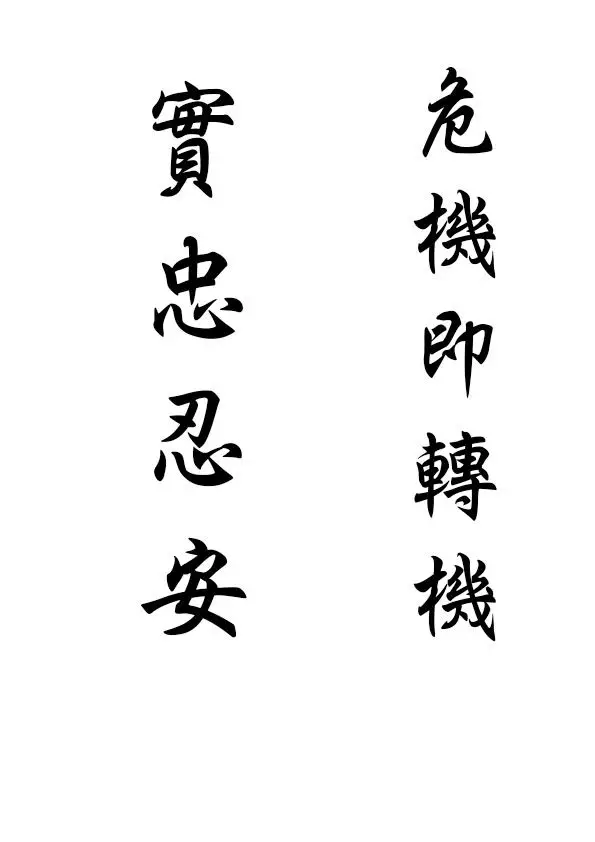 危機即轉機
實忠忍安